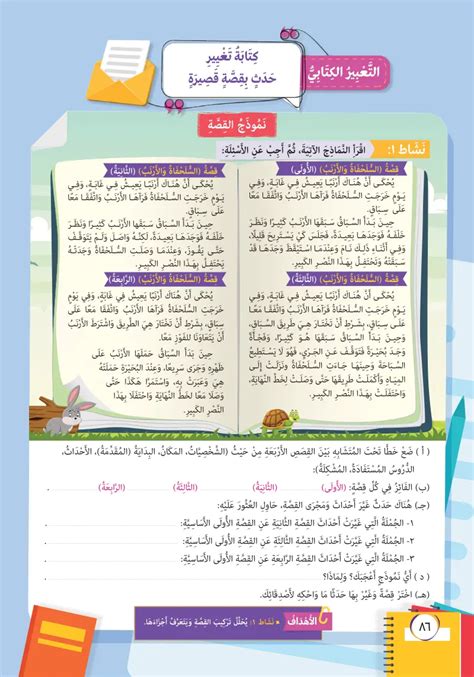 التَّعْبِيرُ الكِتَابِيُّ
كِتَابَةُ تَغْيِيرِ
حَدَثٍ بِقِصَّةٍ قَصِيرَةٍ
نَمُوذَجُ القِصَّة
نَشَاط ١: اقْرَأِ النَّمَاذِجَ الآتِيَةَ، ثُمَّ أَجِبْ عَنِ الأَسْئِلَةِ:
قِصَّةُ (السُّلَحْفَاةُ وَالأَرْنَبُ) (الأُولَى)
يُحْكَى أَنَّ هُنَاكَ أَرْنَبًا يَعِيشُ فِي غَابَةٍ، وَفِي
يَوْمٍ خَرَجَتِ السُّلَحْفَاةُ فَرَآهَا الأَرْنَبُ وَاتَّفَقَا مَعًا
عَلَى سِبَاقٍ.
حِينَ بَدَأَ السِّبَاقُ سَبَقَهَا الأَرْنَبُ كَثِيرًا وَنَظَرَ
خَلْفَهُ فَوَجَدَهَا بَعِيدَةً، فَجَلَسَ لِيَسْتَرِيحَ قَلِيلًا،
وَفِي أَثْنَاءِ ذَلِكَ نَامَ وَعِنْدَمَا اسْتَيْقَظَ وَجَدَهَا قَدْ
تَحْتَفِلُ بِهَذَا النَّصْرِ الكَبِيرِ.
قِصَّةُ (السُّلَحْفَاةُ وَالأَرْنَبُ) (الثَّانِيَةُ)
يُحْكَى أَنَّ هُنَاكَ أَرْنَبًا يَعِيشُ فِي غَابَةٍ، وَفِي
يَوْمٍ خَرَجَتِ السُّلَحْفَاةُ فَرَآهَا الأَرْنَبُ وَاتَّفَقَا مَعًا
عَلَى سِبَاقٍ.
حِينَ بَدَأَ السِّبَاقُ سَبَقَهَا الأَرْنَبُ كَثِيرًا وَنَظَرَ
خَلْفَهُ فَوَجَدَهَا بَعِيدَةً، وَلَكِنَّهُ وَاصَلَ وَلَمْ يَتَوَقَّفْ
حَتَّى وَصَلَ وَعِنْدَمَا وَصَلَتِ السُّلَحْفَاةُ وَجَدَتْهُ
يَحْتَفِلُ بِهَذَا النَّصْرِ الكَبِيرِ.
قِصَّةُ (السُّلَحْفَاةُ وَالأَرْنَبُ) (الثَّالِثَةُ)
يُحْكَى أَنَّ هُنَاكَ أَرْنَبًا يَعِيشُ فِي غَابَةٍ، وَفِي
يَوْمٍ خَرَجَتِ السُّلَحْفَاةُ فَرَآهَا الأَرْنَبُ وَاتَّفَقَا عَلَى
السِّبَاقِ، بِشَرْطِ أَنْ تَخْتَارَ هِيَ الطَّرِيقَ.
حِينَ بَدَأَ السِّبَاقُ سَبَقَهَا هُوَ، وَفَجْأَةً
وَجَدَ بُحَيْرَةً فَتَوَقَّفَ عَنِ الجَرْيِ، فَهُوَ لَا يَسْتَطِيعُ
السِّبَاحَةَ، لَكِنَّ السُّلَحْفَاةَ وَنَزَلَتْ إِلَى
المِيَاهِ وَأَكْمَلَتْ حَتَّى وَصَلَتْ خَطَّ النِّهَايَةِ،
فَكَانَتْ حَقًّا تَسْتَحِقُّ هَذَا النَّصْرَ الكَبِيرَ.
قِصَّةُ (السُّلَحْفَاةُ وَالأَرْنَبُ) (الرَّابِعَةُ)
يُحْكَى أَنَّ هُنَاكَ أَرْنَبًا يَعِيشُ فِي غَابَةٍ، وَفِي يَوْمٍ
خَرَجَتِ السُّلَحْفَاةُ فَرَآهَا الأَرْنَبُ وَاتَّفَقَا مَعًا عَلَى
سِبَاقٍ، بِشَرْطِ أَنْ تَخْتَارَ هِيَ الطَّرِيقَ وَاشْتَرَطَ الأَرْنَبُ
أَنْ يَتَعَاوَنَا لِلْفَوْزِ مَعًا.
حِينَ بَدَأَ السِّبَاقُ حَمَلَهَا الأَرْنَبُ عَلَى
ظَهْرِهِ وَجَرَى سَرِيعًا، وَعِنْدَمَا وَجَدَا البُحَيْرَةَ حَمَلَتْهُ
هِيَ وَعَبَرَتْ بِهِ، وَاسْتَمَرَّا هَكَذَا حَتَّى
وَصَلَا مَعًا لِخَطِّ النِّهَايَةِ وَاحْتَفَلَا بِهَذَا
النَّصْرِ الكَبِيرِ.
( أ ) ضَعْ خَطًّا تَحْتَ المُتَشَابِهِ بَيْنَ القِصَصِ الأَرْبَعَةِ مِنْ حَيْثُ (الشَّخْصِيَّاتُ، المَكَانُ، البِدَايَةُ (المُقَدِّمَةُ)، الأَحْدَاثُ،
الدُّرُوسُ المُسْتَفَادَةُ، المُشْكِلَةُ):
(ب) الفَائِزُ فِي كُلِّ قِصَّةٍ: (الأُولَى) (الثَّانِيَةُ) (الثَّالِثَةُ) (الرَّابِعَةُ) .
(جـ) هُنَاكَ جُمَلٌ غَيَّرَتْ أَحْدَاثَ وَمَجْرَى القِصَّةِ، حَاوِلِ العُثُورَ عَلَيْهِ:
١- الجُمْلَةُ الَّتِي غَيَّرَتْ أَحْدَاثَ القِصَّةِ الثَّانِيَةِ عَنِ القِصَّةِ الأُولَى الأَسَاسِيَّةِ:
٢- الجُمْلَةُ الَّتِي غَيَّرَتْ أَحْدَاثَ القِصَّةِ الثَّالِثَةِ عَنِ القِصَّةِ الأُولَى الأَسَاسِيَّةِ:
٣- الجُمْلَةُ الَّتِي غَيَّرَتْ أَحْدَاثَ القِصَّةِ الرَّابِعَةِ عَنِ القِصَّةِ الأُولَى الأَسَاسِيَّةِ:
( د ) أَيُّ نَمُوذَجٍ أَعْجَبَكَ؟ وَلِمَاذَا؟
(هـ) اخْتَرْ قِصَّةً وَغَيِّرْ بِهَا حَدَثًا مَا وَاحْكِهِ لِأَصْدِقَائِكَ.
الأَهْدَافُ • نَشَاط ١: يُحَلِّلُ تَرْكِيبَ القِصَّةِ وَيَتَعَرَّفُ أَجْزَاءَهَا.
٨٦